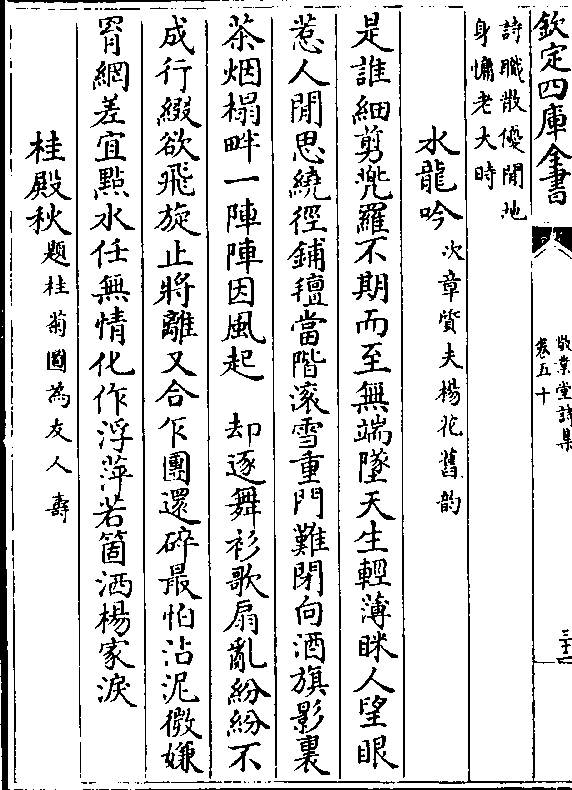 欽定四庫全書
敬業堂詩集
卷五十
三十二
詩職散優閒地
身慵老大時
水龍吟次章質夫楊花舊韵
是誰細剪兜羅不期而至無端墜天生輕薄眯人望眼
惹人閒思繞徑鋪氊當階滚雪重門難閉向酒旗影裏
茶烟榻畔一陣陣因風起　却逐舞衫歌扇亂紛紛不
成行綴欲飛旋止將離又合乍團還碎最怕沾泥微嫌
罥網差宜點水任無情化作浮萍若箇洒楊家淚
桂殿秋題桂菊圖為友人壽